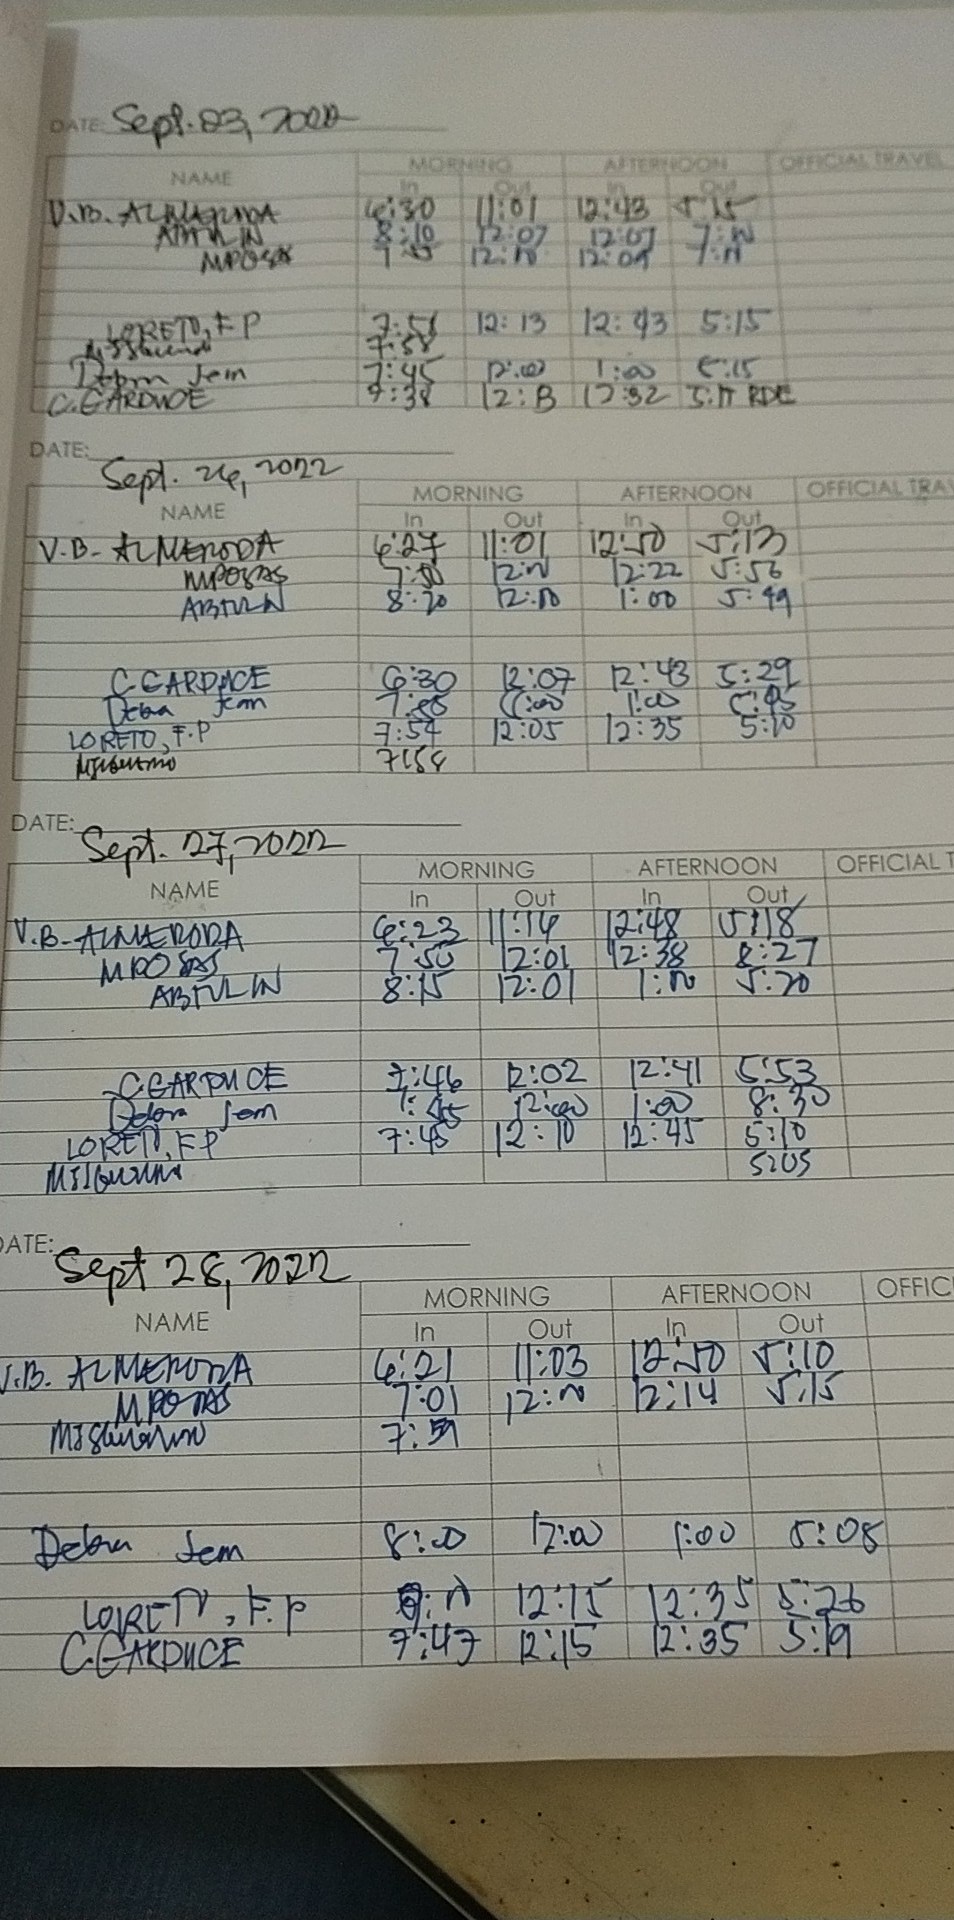 DATE: Sept. 23, 2022
NAME MORNING AFTERNOON OFFICIAL TRAVEL
In Out In Out
V.B. ALMERODA 6:30 11:01 12:43 5:15
ABTULIN 8:10 12:07 12:07
MPOSAS 12:09
LORETO, F.P 7:58 12:13 12:43 5:15
7:58
Debra Jem 7:45 12:00 1:00 5:15
C.GARDUCE 7:38 12:13 12:32 5:17 RDE
DATE: Sept. 26, 2022
NAME MORNING AFTERNOON OFFICIAL TRAV
In Out In Out
V.B. ALMERODA 6:27 11:01 12:50 5:13
MPOSAS 7:50 12:00 12:22 5:56
ABTULIN 8:20 12:00 1:00 5:49
C.GARDUCE 6:30 12:07 12:43 5:29
Debra Jem 1:00
LORETO, F.P 7:54 12:05 12:35 5:10
DATE: Sept. 27, 2022
NAME MORNING AFTERNOON OFFICIAL T
In Out In Out
V.B. ALMERODA 6:23 11:14 12:48 5:18
MPOSAS 7:50 12:01 12:38 8:27
ABTULIN 8:15 12:01 1:00 5:20
C.GARDUCE 7:46 12:02 12:41 5:53
Debra Jem 7:45 12:00 1:00 8:30
LORETO, F.P 7:45 12:10 12:45 5:10
5:05
DATE: Sept 28, 2022
NAME MORNING AFTERNOON OFFIC
In Out In Out
V.B. ALMERODA 6:21 11:03 12:50 5:10
MPOSAS 7:01 12:00 12:14 5:15
7:59
Debra Jem 8:00 12:00 1:00 5:08
LORETO, F.P 12:15 12:35 5:26
C.GARDUCE 7:47 12:15 12:35 5:19